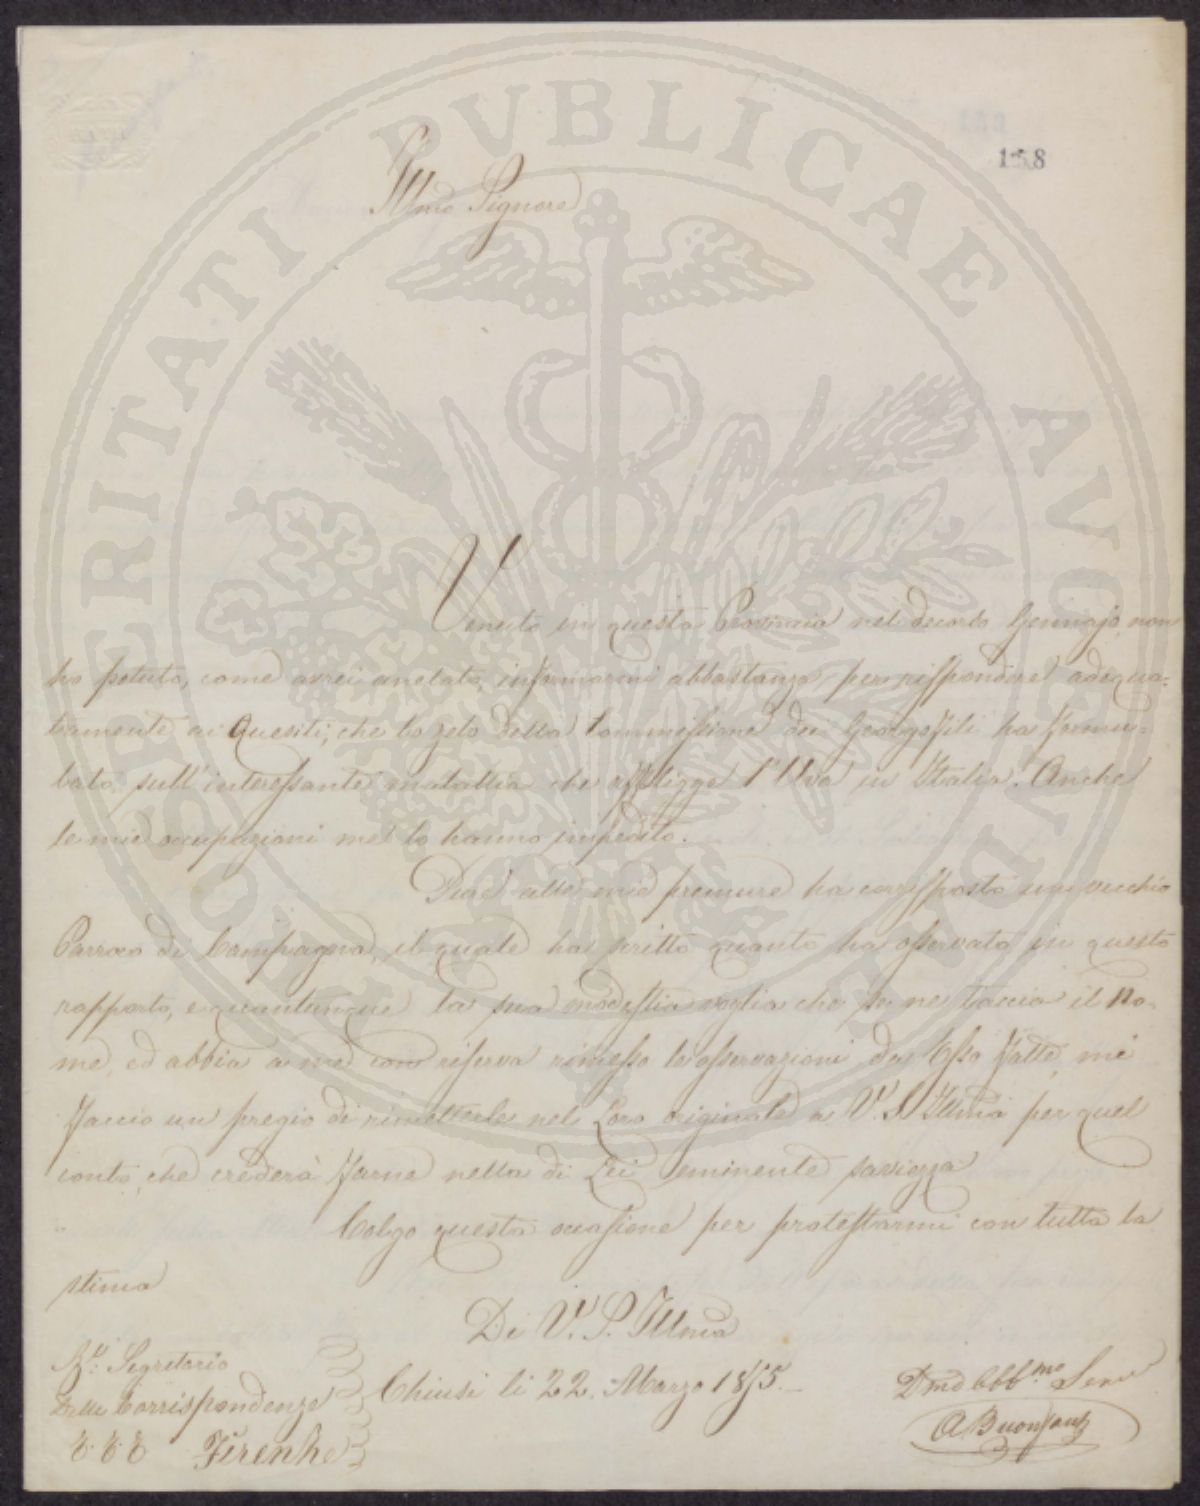 PROSPERITATI PUBLICAE AUGENDAE
158
Illmo Signore
Venuto in questa Provincia nel decorso Gennajo, non
ho potuto, come avrei anelato, informarmi abbastanza per rispondere adequa=
tamente ai Quesiti, che lo zelo della Commissione dei Georgofili ha formu=
lato sull' interessante malattia che affligge l'Uva in Italia. Anche
le mie occupazioni me lo hanno impedito.
alle mie premure ha corrisposto un vecchio
Parroco di Campagna, il quale ha scritto quanto ha osservato in questo
rapporto, e quantunque la sua modestia voglia che se ne taccia il No-
me, ed abbia a me con riserva rimesso le osservazioni da Esso fatte, mi
faccio un pregio di rimetterle nel Loro originale a V. S. Illma per quel
conto, che crederà farne nella di Lei eminente saviezza
Colgo questa occasione per protestarmi con tutta la
stima
Di V. S. Illma
Segretario
Delle Corrispondenze
Firenze
Chiusi li 22. Marzo 1855.
Dmo Obbmo Serv
A Buonfanti